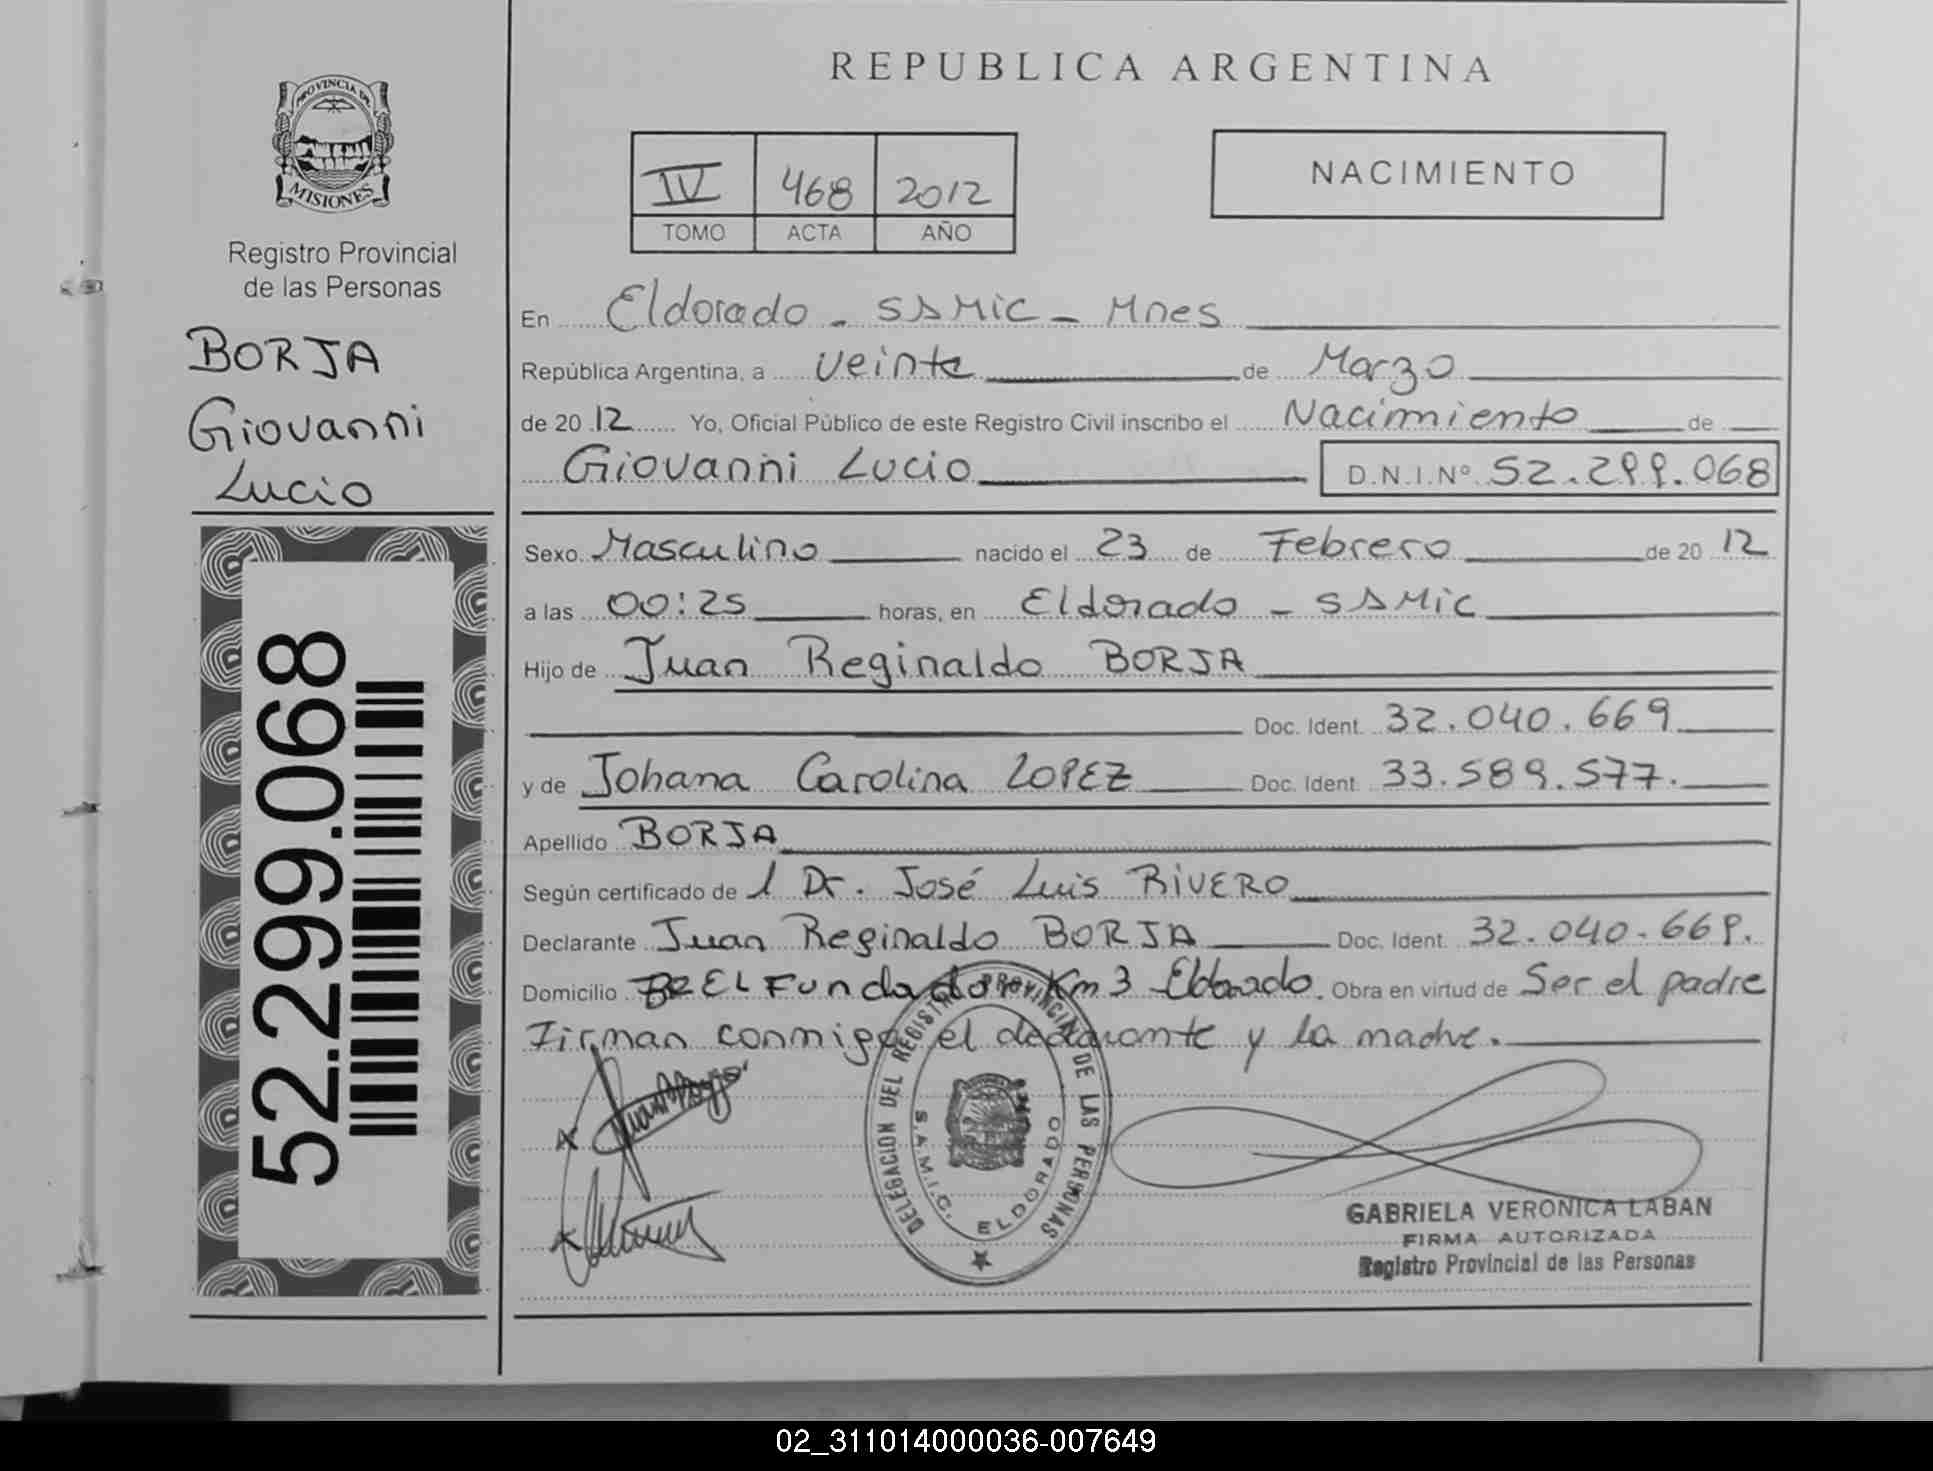 REPUBLICA ARGENTINA
PROVINCIA DE
MISIONES
Registro Provincial
de las Personas
BORJA
Giovanni
Lucio
52.299.068
IV 468 2012
TOMO ACTA AÑO
NACIMIENTO
En Eldorado - SAMiC - Mnes
República Argentina, a veinte de Marzo
de 20 12 Yo, Oficial Público de este Registro Civil inscribo el Nacimiento de
Giovanni Lucio D.N.I.Nº 52.299.068
Sexo Masculino nacido el 23 de Febrero de 20 12
a las 00:25 horas, en Eldorado - SAMiC
Hijo de Juan Reginaldo BORJA
Doc. Ident. 32.040.669
y de Johana Carolina LOPEZ Doc. Ident. 33.589.577.
Apellido BORJA
Según certificado de l Dr. José Luis RiVERO
Declarante Juan Reginaldo BORJA Doc. Ident. 32.040.669.
Domicilio EL Fundador Km 3 Eldorado. Obra en virtud de Ser el padre
Firman conmigo el declarante y la madre.
DELEGACION DEL REGISTRO PROVINCIAL DE LAS PERSONAS
S.A.M.I.C. ELDORADO
GABRIELA VERONICA LABAN
FIRMA AUTORIZADA
Registro Provincial de las Personas
02_311014000036-007649